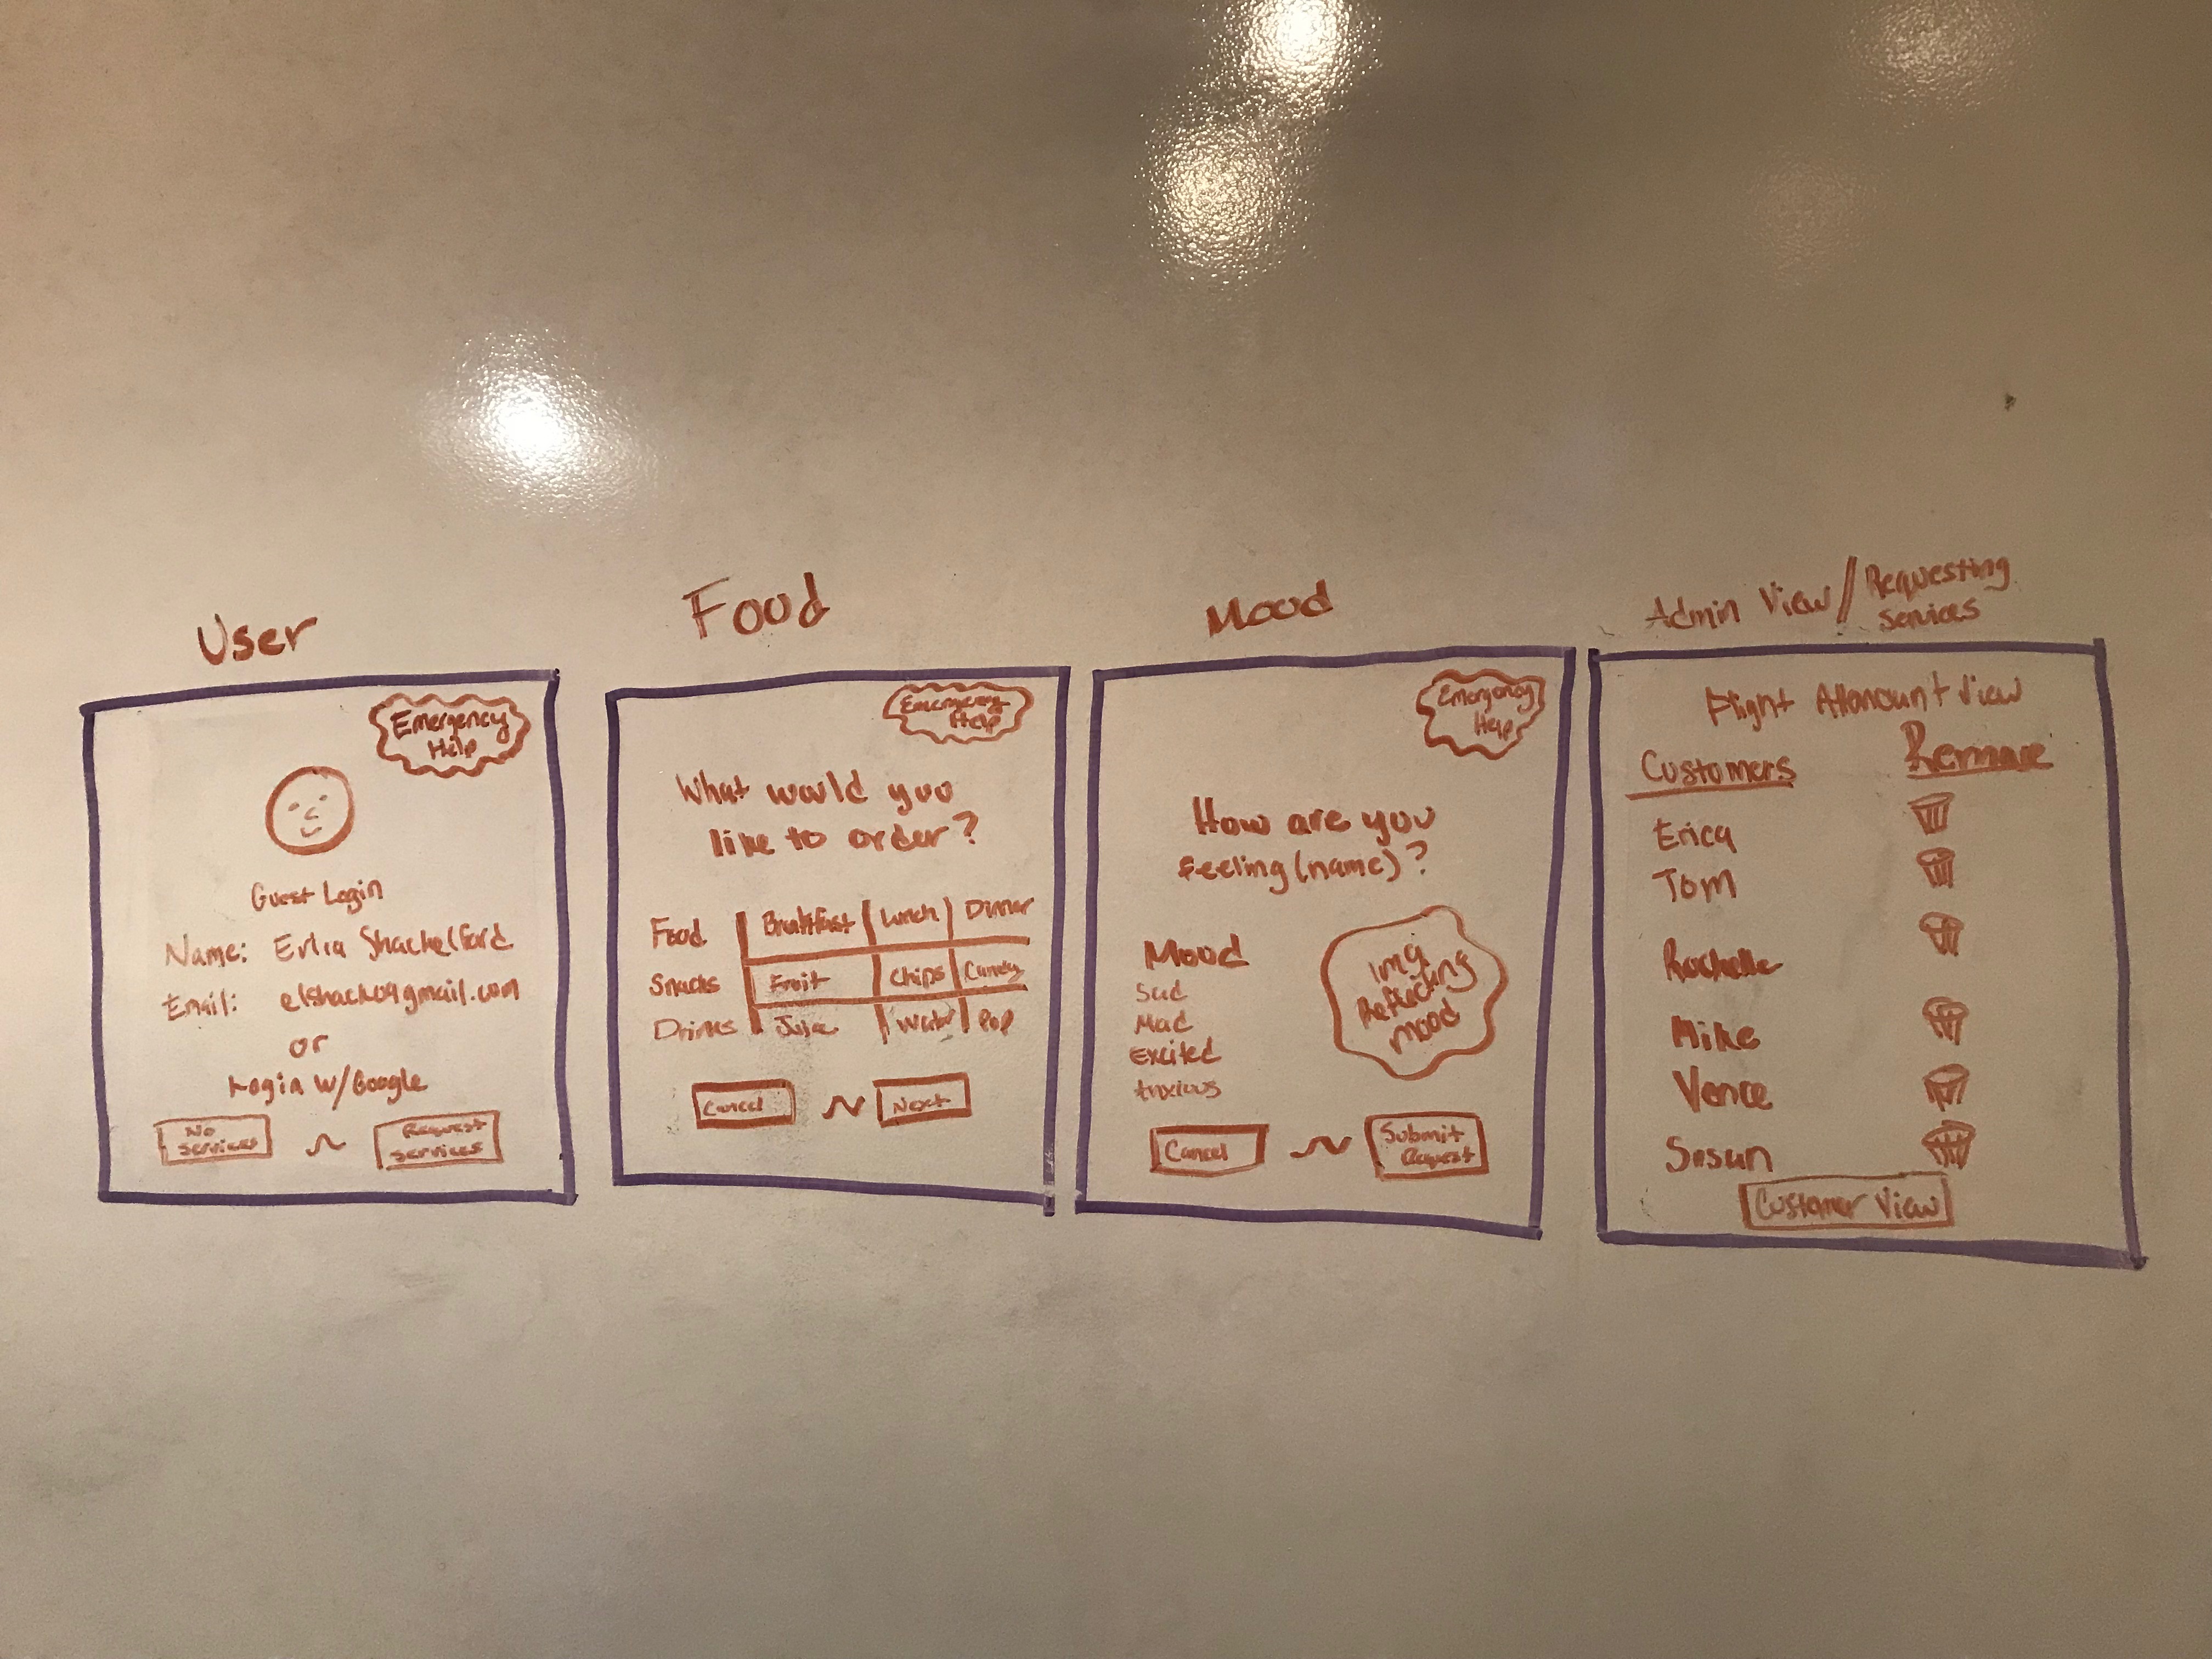 User
Emergency
Help
Guest Login
Name: Erica Shackelford
Email:
or
Login w/Google
No
Services
Request
Services
Food
Emergency
Help
What would you
like to order?
Food Breakfast Lunch Dinner
Snacks Fruit Chips Candy
Drinks Juice Water Pop
Cancel Next
Mood
Emergency
Help
How are you
feeling (name)?
Mood
Sad
Mad
Excited
Anxious
Img
Reflecting
mood
Cancel
Submit
Request
Admin View / Requesting
Services
Flight View
Customers Remove
Erica
Tom
Rochelle
Mike
Vence
Susan
Customer View